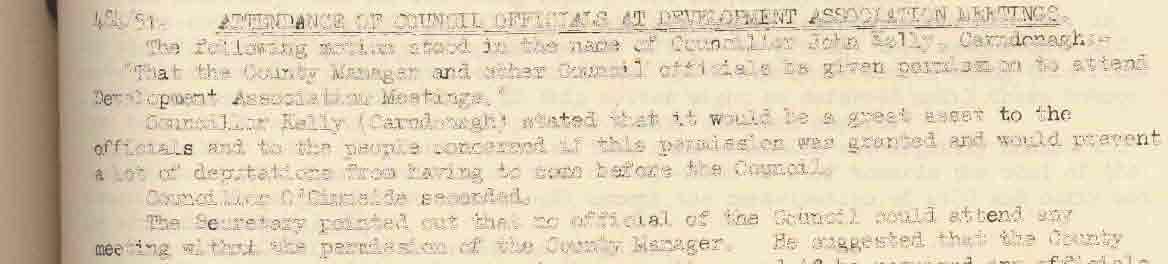 ATTENDANCE OF COUNCIL OFFICIALS AT DEVELOPMENT ASSOCIATION MEETINGS.
The following motion stood in the name of Councillor John Kelly, Carndonagh:-
"That the County Manager and other Council officials be given permission to attend
Development Association Meetings."
Councillor Kelly (Carndonagh) stated that it would be a great asset to the
officials and to the people concerned if this permission was granted and would prevent
a lot of deputations from having to come before the Council.
Councillor seconded.
The Secretary pointed out that no official of the Council could attend any
meeting without the permission of the County Manager. He suggested that the County
officials